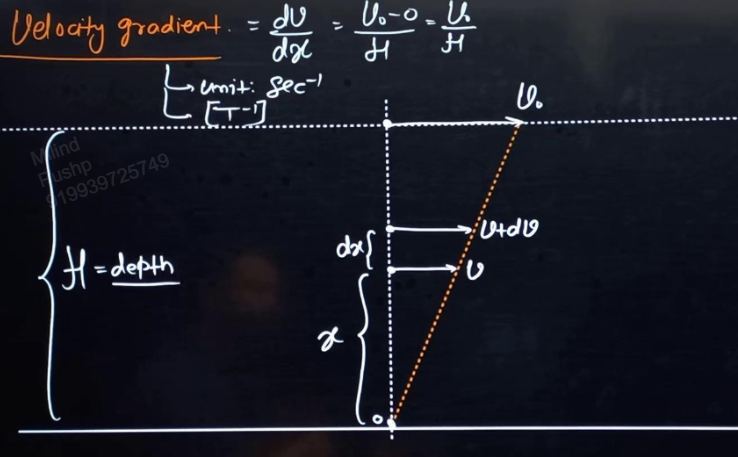 Velocity gradient. = dv/dx = (v₀-0)/H = v₀/H
unit: sec⁻¹
[T⁻¹]
v₀
Milind
Pushp
919939725749
v+dv
dx
H = depth
v
x
0